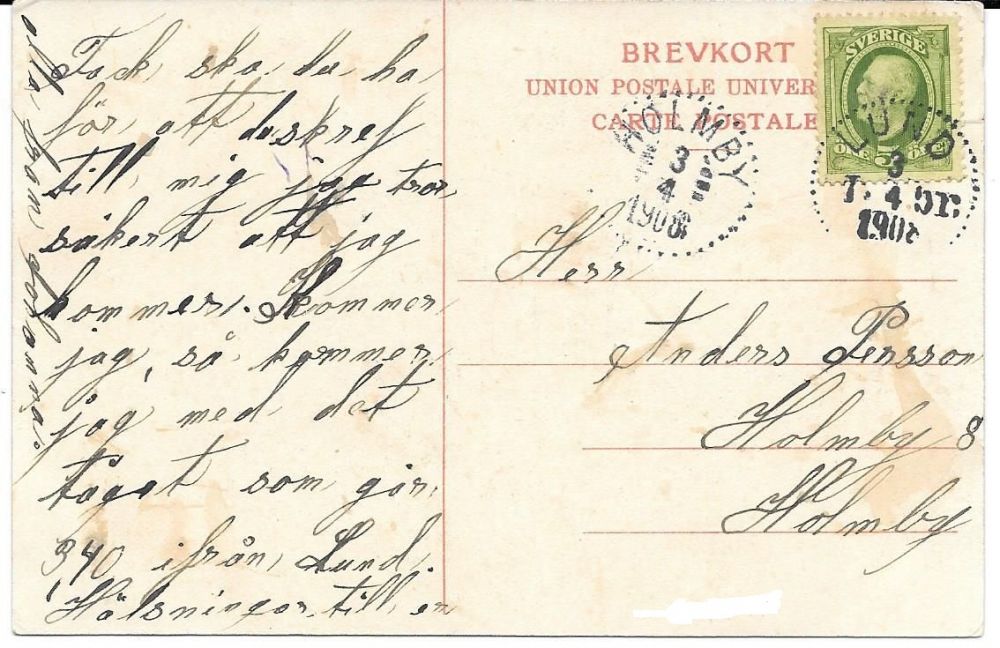 Tack ska du ha
för att du skref
till mig jag tror
säkert att jag
kommer. Kommer
jag, så kommer
jag med det
tåget som går
3,40 ifrån Lund
Hälsningar till er
alla från Johanna.
BREVKORT
UNION POSTALE UNIVER
CARTE POSTALE
SVERIGE
5
ÖRE
HOLMBY
3
4
1908
LUND
3
4
1908
Herr
Anders Persson
Holmby 8
Holmby